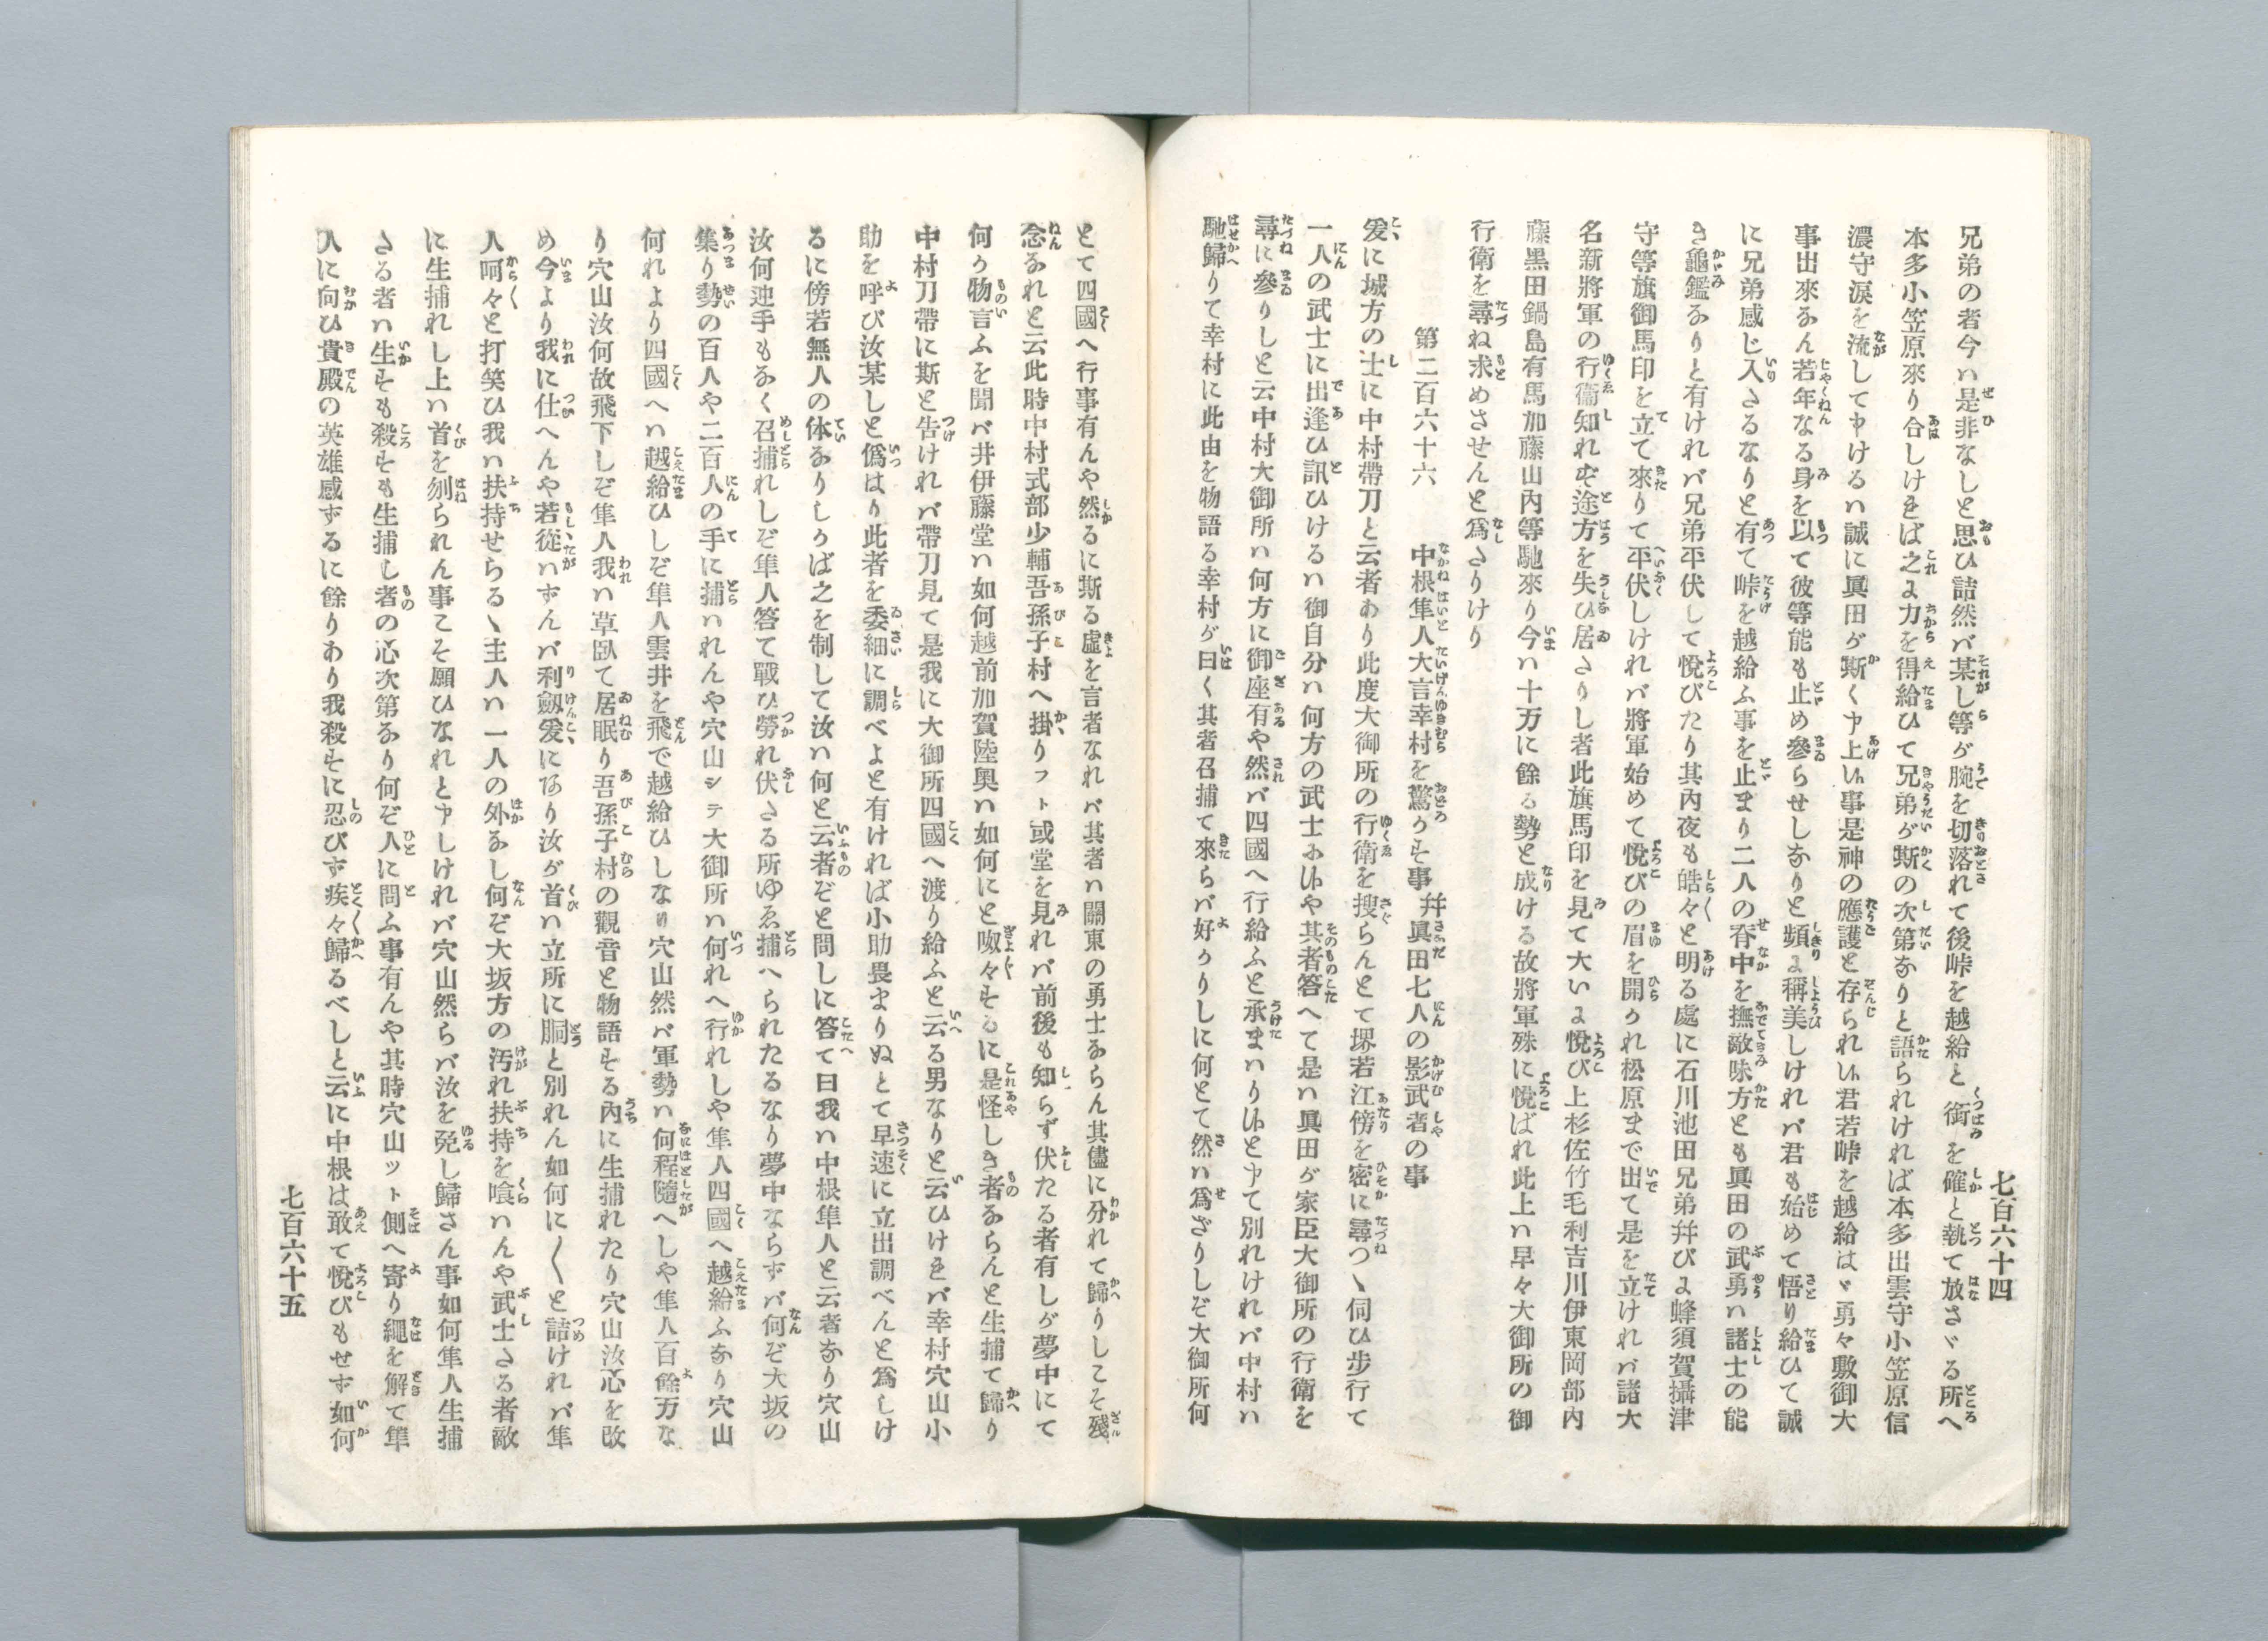 七百六十四
兄弟の者今ハ是非なしと思ひ詰然バ某し等が腕を切落れて後峠を越給と銜を確と執て放さゞる所へ
本多小笠原來り合しければ之よ力を得給ひて兄弟が斯の次第なりと語られければ本多出雲守小笠原信
濃守涙を流して申けるハ誠に眞田が斯く申上し事是神の應護と存られ候君若峠を越給はゞ勇々敷御大
事出來なん若年なる身を以て彼等能も止め參らせしなりと頻よ稱美しけれバ君も始めて悟り給ひて誠
に兄弟感じ入さるなりと有て峠を越給ふ事を止まり二人の脊中を撫敵味方とも眞田の武勇ハ諸士の能
き龜鑑なりと有けれバ兄弟平伏して悅びたり其內夜も皓々と明る處に石川池田兄弟幷びよ蜂須賀攝津
守等旗御馬印を立て來りて平伏しけれバ將軍始めて悅びの眉を開かれ松原まで出て是を立けれバ諸大
名新將軍の行衞知れず途方を失ひ居さりし者此旗馬印を見て大いよ悅び上杉佐竹毛利吉川伊東岡部內
藤黑田鍋島有馬加藤山內等馳來り今ハ十万に餘る勢と成ける故將軍殊に悅ばれ此上ハ早々大御所の御
行衞を尋ね求めさせんと爲さりけり
第二百六十六　中根隼人大言幸村を驚かす事　幷眞田七人の影武者の事
爰に城方の士に中村帶刀と云者あり此度大御所の行衞を搜らんとて堺若江傍を密に尋つゝ伺ひ步行て
一人の武士に出逢ひ訊ひけるハ御自分ハ何方の武士に候や其者答へて是ハ眞田が家臣大御所の行衞を
尋に參りしと云中村大御所ハ何方に御座有や然バ四國へ行給ふと承まハり候と申て別れけれバ中村ハ
馳歸りて幸村に此由を物語る幸村が曰く其者召捕て來らバ好かりしに何とて然ハ爲ざりしぞ大御所何
とて四國へ行事有んや然るに斯る虛を言者なれバ其者ハ關東の勇士ならん其儘に分れて歸りしこそ殘
念なれと云此時中村式部少輔吾孫子村へ掛りフト或堂を見れバ前後も知らず伏たる者有しが夢中にて
何か物言ふを聞バ井伊藤堂ハ如何越前加賀陸奧ハ如何にと呶々するに是怪しき者ならんと生捕て歸り
中村刀帶に斯と告けれバ帶刀見て是我に大御所四國へ渡り給ふと云る男なりと云ひけれバ幸村穴山小
助を呼び汝某しと僞はり此者を委細に調べよと有ければ小助畏まりぬとて早速に立出調べんと爲しけ
るに傍若無人の体なりしかば之を制して汝ハ何と云者ぞと問しに答て曰我ハ中根隼人と云者なり穴山
汝何迚手もなく召捕れしぞ隼人答て戰ひ勞れ伏さる所ゆゑ捕へられたるなり夢中ならずバ何ぞ大坂の
集り勢の百人や二百人の手に捕ハれんや穴山シテ大御所ハ何れへ行れしや隼人四國へ越給ふなり穴山
何れより四國へハ越給ひしぞ隼人雲井を飛で越給ひしなり穴山然バ軍勢ハ何程隨へしや隼人百餘万な
り穴山汝何故飛下しぞ隼人我ハ草臥て居眠り吾孫子村の觀音と物語する內に生捕れたり穴山汝心を改
め今より我に仕へんや若從ハずんバ利劔爰にあり汝が首ハ立所に胴と別れん如何に〱と詰けれバ隼
人呵々と打笑ひ我ハ扶持せらるゝ主人ハ一人の外なし何ぞ大坂方の汚れ扶持を喰ハんや武士さる者敵
に生捕れし上ハ首を刎られん事こそ願ひなれと申しけれバ穴山然らバ汝を免し歸さん事如何隼人生捕
さる者ハ生すも殺すも生捕し者の心次第なり何ぞ人に問ふ事有んや其時穴山ツト側へ寄り繩を解て隼
人に向ひ貴殿の英雄感ずるに餘りあり我殺すに忍びず疾々歸るべしと云に中根は敢て悅びもせず如何
七百六十五